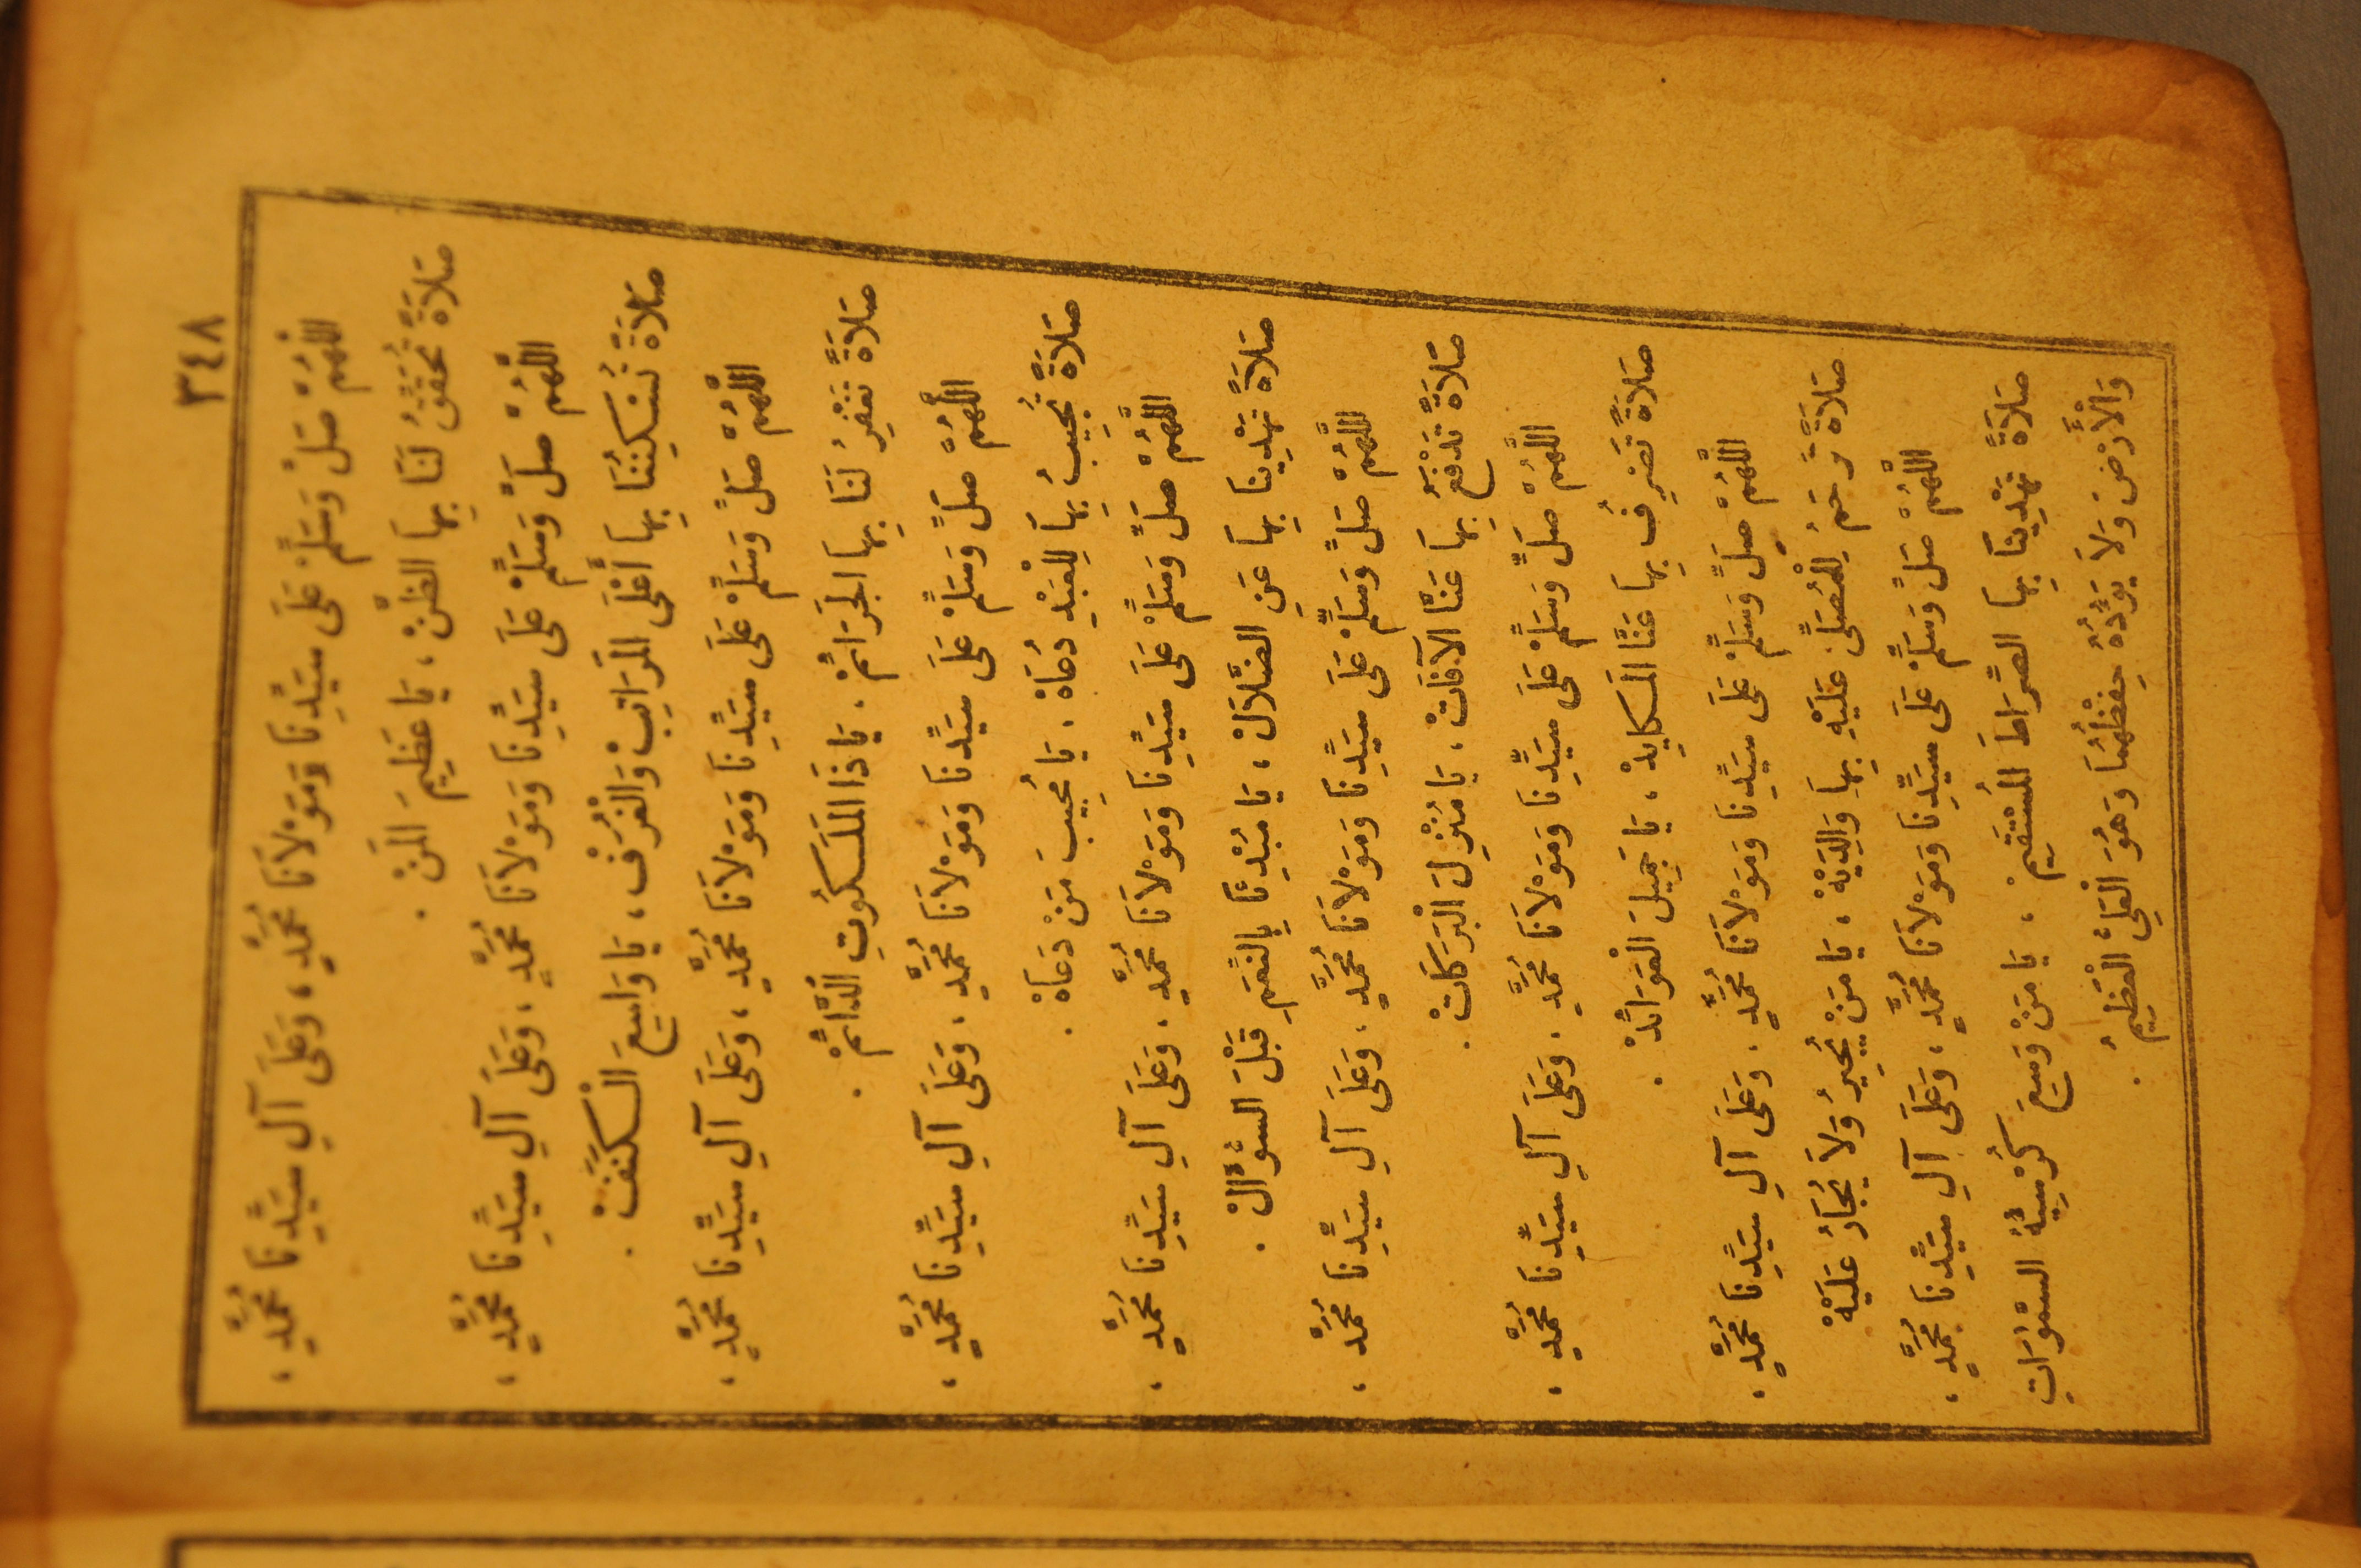 ٣٤٨
اللّٰهُمَّ صَلِّ وَسَلِّمْ عَلَى سَيِّدِنَا وَمَوْلَانَا مُحَمَّدٍ، وَعَلَى آلِ سَيِّدِنَا مُحَمَّدٍ،
صَلَاةً تُحَقِّقُ لَنَا بِهَا الظَّنَّ، يَا عَظِيمَ الْمَنّْ.
اللّٰهُمَّ صَلِّ وَسَلِّمْ عَلَى سَيِّدِنَا وَمَوْلَانَا مُحَمَّدٍ، وَعَلَى آلِ سَيِّدِنَا مُحَمَّدٍ،
صَلَاةً تُسْكِنُنَا بِهَا أَعْلَى الْمَرَاتِبْ وَالْغُرَفْ، يَا وَاسِعَ الْكَنَفْ.
اللّٰهُمَّ صَلِّ وَسَلِّمْ عَلَى سَيِّدِنَا وَمَوْلَانَا مُحَمَّدٍ، وَعَلَى آلِ سَيِّدِنَا مُحَمَّدٍ،
صَلَاةً تَغْفِرُ لَنَا بِهَا الْجَرَائِمْ. يَا ذَا الْمَلَكُوتِ الدَّائِمْ.
اللّٰهُمَّ صَلِّ وَسَلِّمْ عَلَى سَيِّدِنَا وَمَوْلَانَا مُحَمَّدٍ. وَعَلَى آلِ سَيِّدِنَا مُحَمَّدٍ،
صَلَاةً تُجِيبُ بِهَا لِلْعَبْدِ دُعَاهْ، يَا مُجِيبَ مَنْ دَعَاهْ.
اللّٰهُمَّ صَلِّ وَسَلِّمْ عَلَى سَيِّدِنَا وَمَوْلَانَا مُحَمَّدٍ. وَعَلَى آلِ سَيِّدِنَا مُحَمَّدٍ،
صَلَاةً تَهْدِينَا بِهَا عَنِ الضَّلَالْ، يَا مُبْدِئَنَا بِالنِّعَمِ قَبْلَ السُّؤَالْ.
اللّٰهُمَّ صَلِّ وَسَلِّمْ عَلَى سَيِّدِنَا وَمَوْلَانَا مُحَمَّدٍ. وَعَلَى آلِ سَيِّدِنَا مُحَمَّدٍ،
صَلَاةً تَدْفَعُ بِهَا عَنَّا الْآفَاتْ، يَا مُنْزِلَ الْبَرَكَاتْ.
اللّٰهُمَّ صَلِّ وَسَلِّمْ عَلَى سَيِّدِنَا وَمَوْلَانَا مُحَمَّدٍ. وَعَلَى آلِ سَيِّدِنَا مُحَمَّدٍ،
صَلَاةً تَصْرِفُ بِهَا عَنَّا الْمَكَايِدْ، يَا جَمِيلَ الْعَوَائِدْ.
اللّٰهُمَّ صَلِّ وَسَلِّمْ عَلَى سَيِّدِنَا وَمَوْلَانَا مُحَمَّدٍ. وَعَلَى آلِ سَيِّدِنَا مُحَمَّدٍ،
صَلَاةً تَرْحَمُ لِلْمُصَلِّى عَلَيْهِ بِهَا وَالِدَيْهْ، يَا مَنْ يُجِيرُ وَلَا يُجَارُ عَلَيْهْ
اللّٰهُمَّ صَلِّ وَسَلِّمْ عَلَى سَيِّدِنَا وَمَوْلَانَا مُحَمَّدٍ، وَعَلَى آلِ سَيِّدِنَا مُحَمَّدٍ،
صَلَاةً تَهْدِينَا بِهَا الصِّرَاطَ الْمُسْتَقِيمْ، يَا مَنْ وَسِعَ كُرْسِيُّهُ السَّمٰوَاتِ
وَالْأَرْضَ وَلَا يَؤُدُهُ حِفْظُهُمَا وَهُوَ الْعَلِيُّ الْعَظِيمُ.